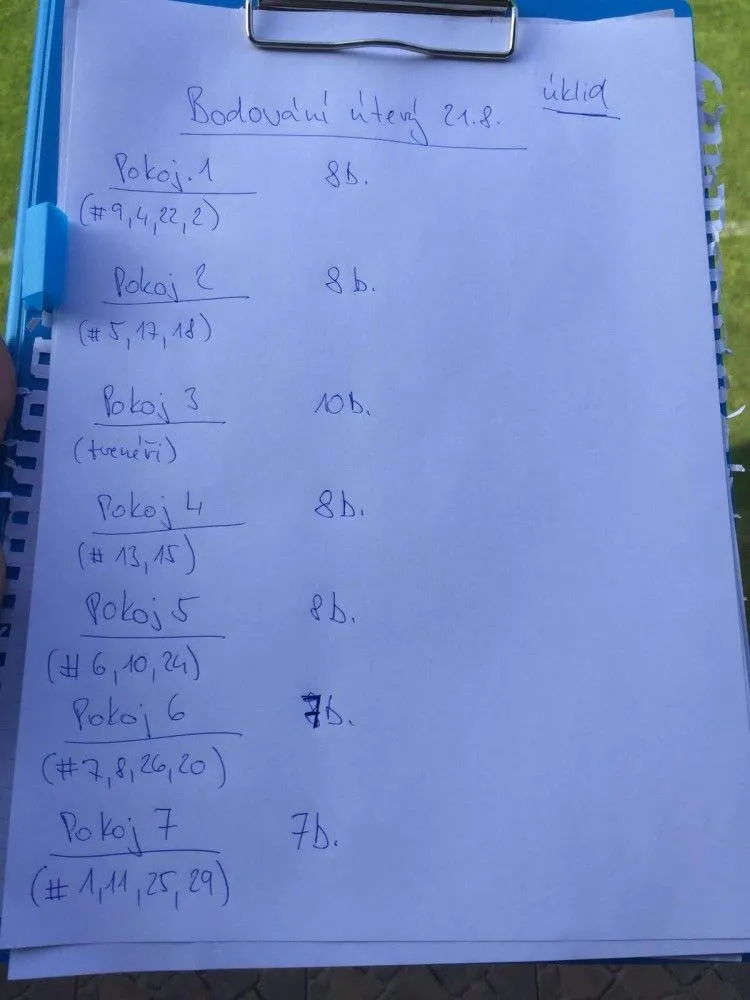 Bodování úterý 21.8. úklid
Pokoj.1 8b.
(#9,4,22,2)
Pokoj 2 8b.
(#5,17,18)
Pokoj 3 10b.
(trenéři)
Pokoj 4 8b.
(#13,15)
Pokoj 5 8b.
(#6,10,24)
Pokoj 6 7b.
(#7,8,26,20)
Pokoj 7 7b.
(#1,11,25,29)